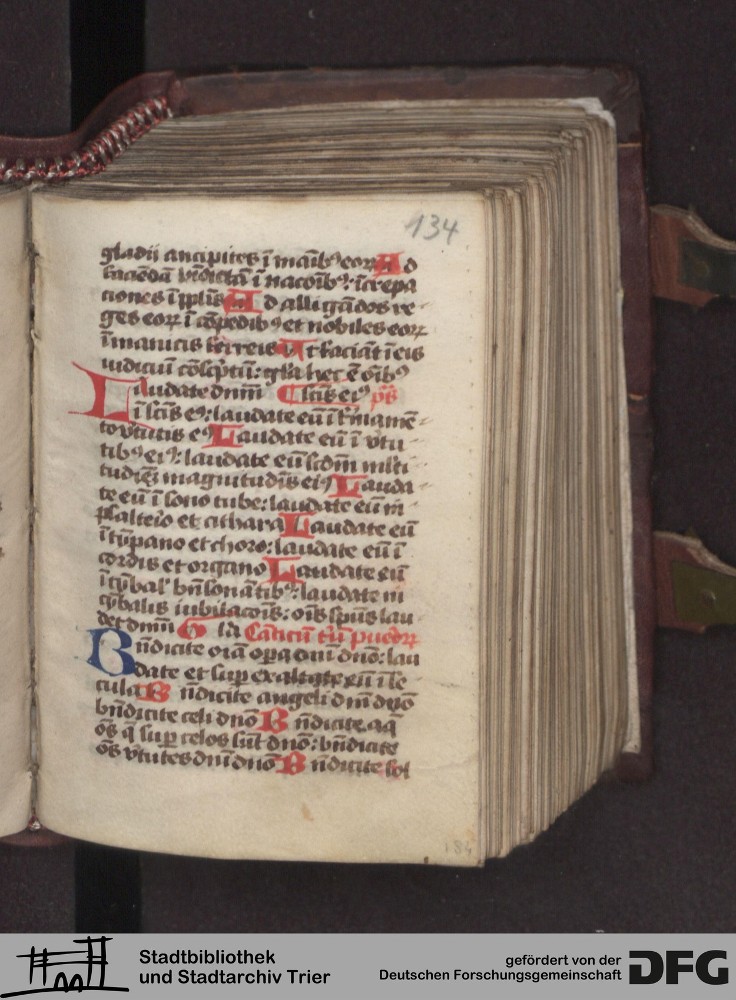 134
gladii ancipites ī maīb⁹ eoꝝ Ad
faciēdā vīdictā ī nacōib⁹: īcrepa
ciones ī pp̄lis Ad alligādos re-
ges eoꝝ ī cōpedib⁹ et nobiles eoꝝ
ī manicis ferreis Vt faciāt ī eis
iudiciū cōscp̄tū: gl̄a hec ē oīb⁹
Laudate dnm̄ scīs ei⁹ p̄s
ī scīs e⁹: laudate eū ī firmamē-
to v̄tutis e⁹ Laudate eū ī v̄tu-
tib⁹ ei⁹: laudate eū scdm̄ ml̄ti-
tudiēꝫ magnitudīs ei⁹ Lauda-
te eū ī sono tube: laudate eū in
psalterio et cithara Laudate eū
ī tȳpano et choro: laudate eū ī
cordis et organo Laudate eū
ī cȳbal' bn̄sonātib⁹: laudate in
cȳbalis iubilacōis: oīs sp̄us lau
det dnm̄ Gl̄a Cāticū triū pueroꝝ
Bn̄dicite oīa opa dn̄i dn̄o: lau
date et suꝑexaltate eū ī se
cula Bn̄dicite angeli dn̄i dn̄o
bn̄dicite celi dn̄o Bn̄dicite aq̄
oēs q̄ suꝑ celos sūt dn̄o: bn̄dicite
oēs v̄tutes dn̄i dn̄o Bn̄dicite sol
184
Stadtbibliothek
und Stadtarchiv Trier
gefördert von der
Deutschen Forschungsgemeinschaft
DFG